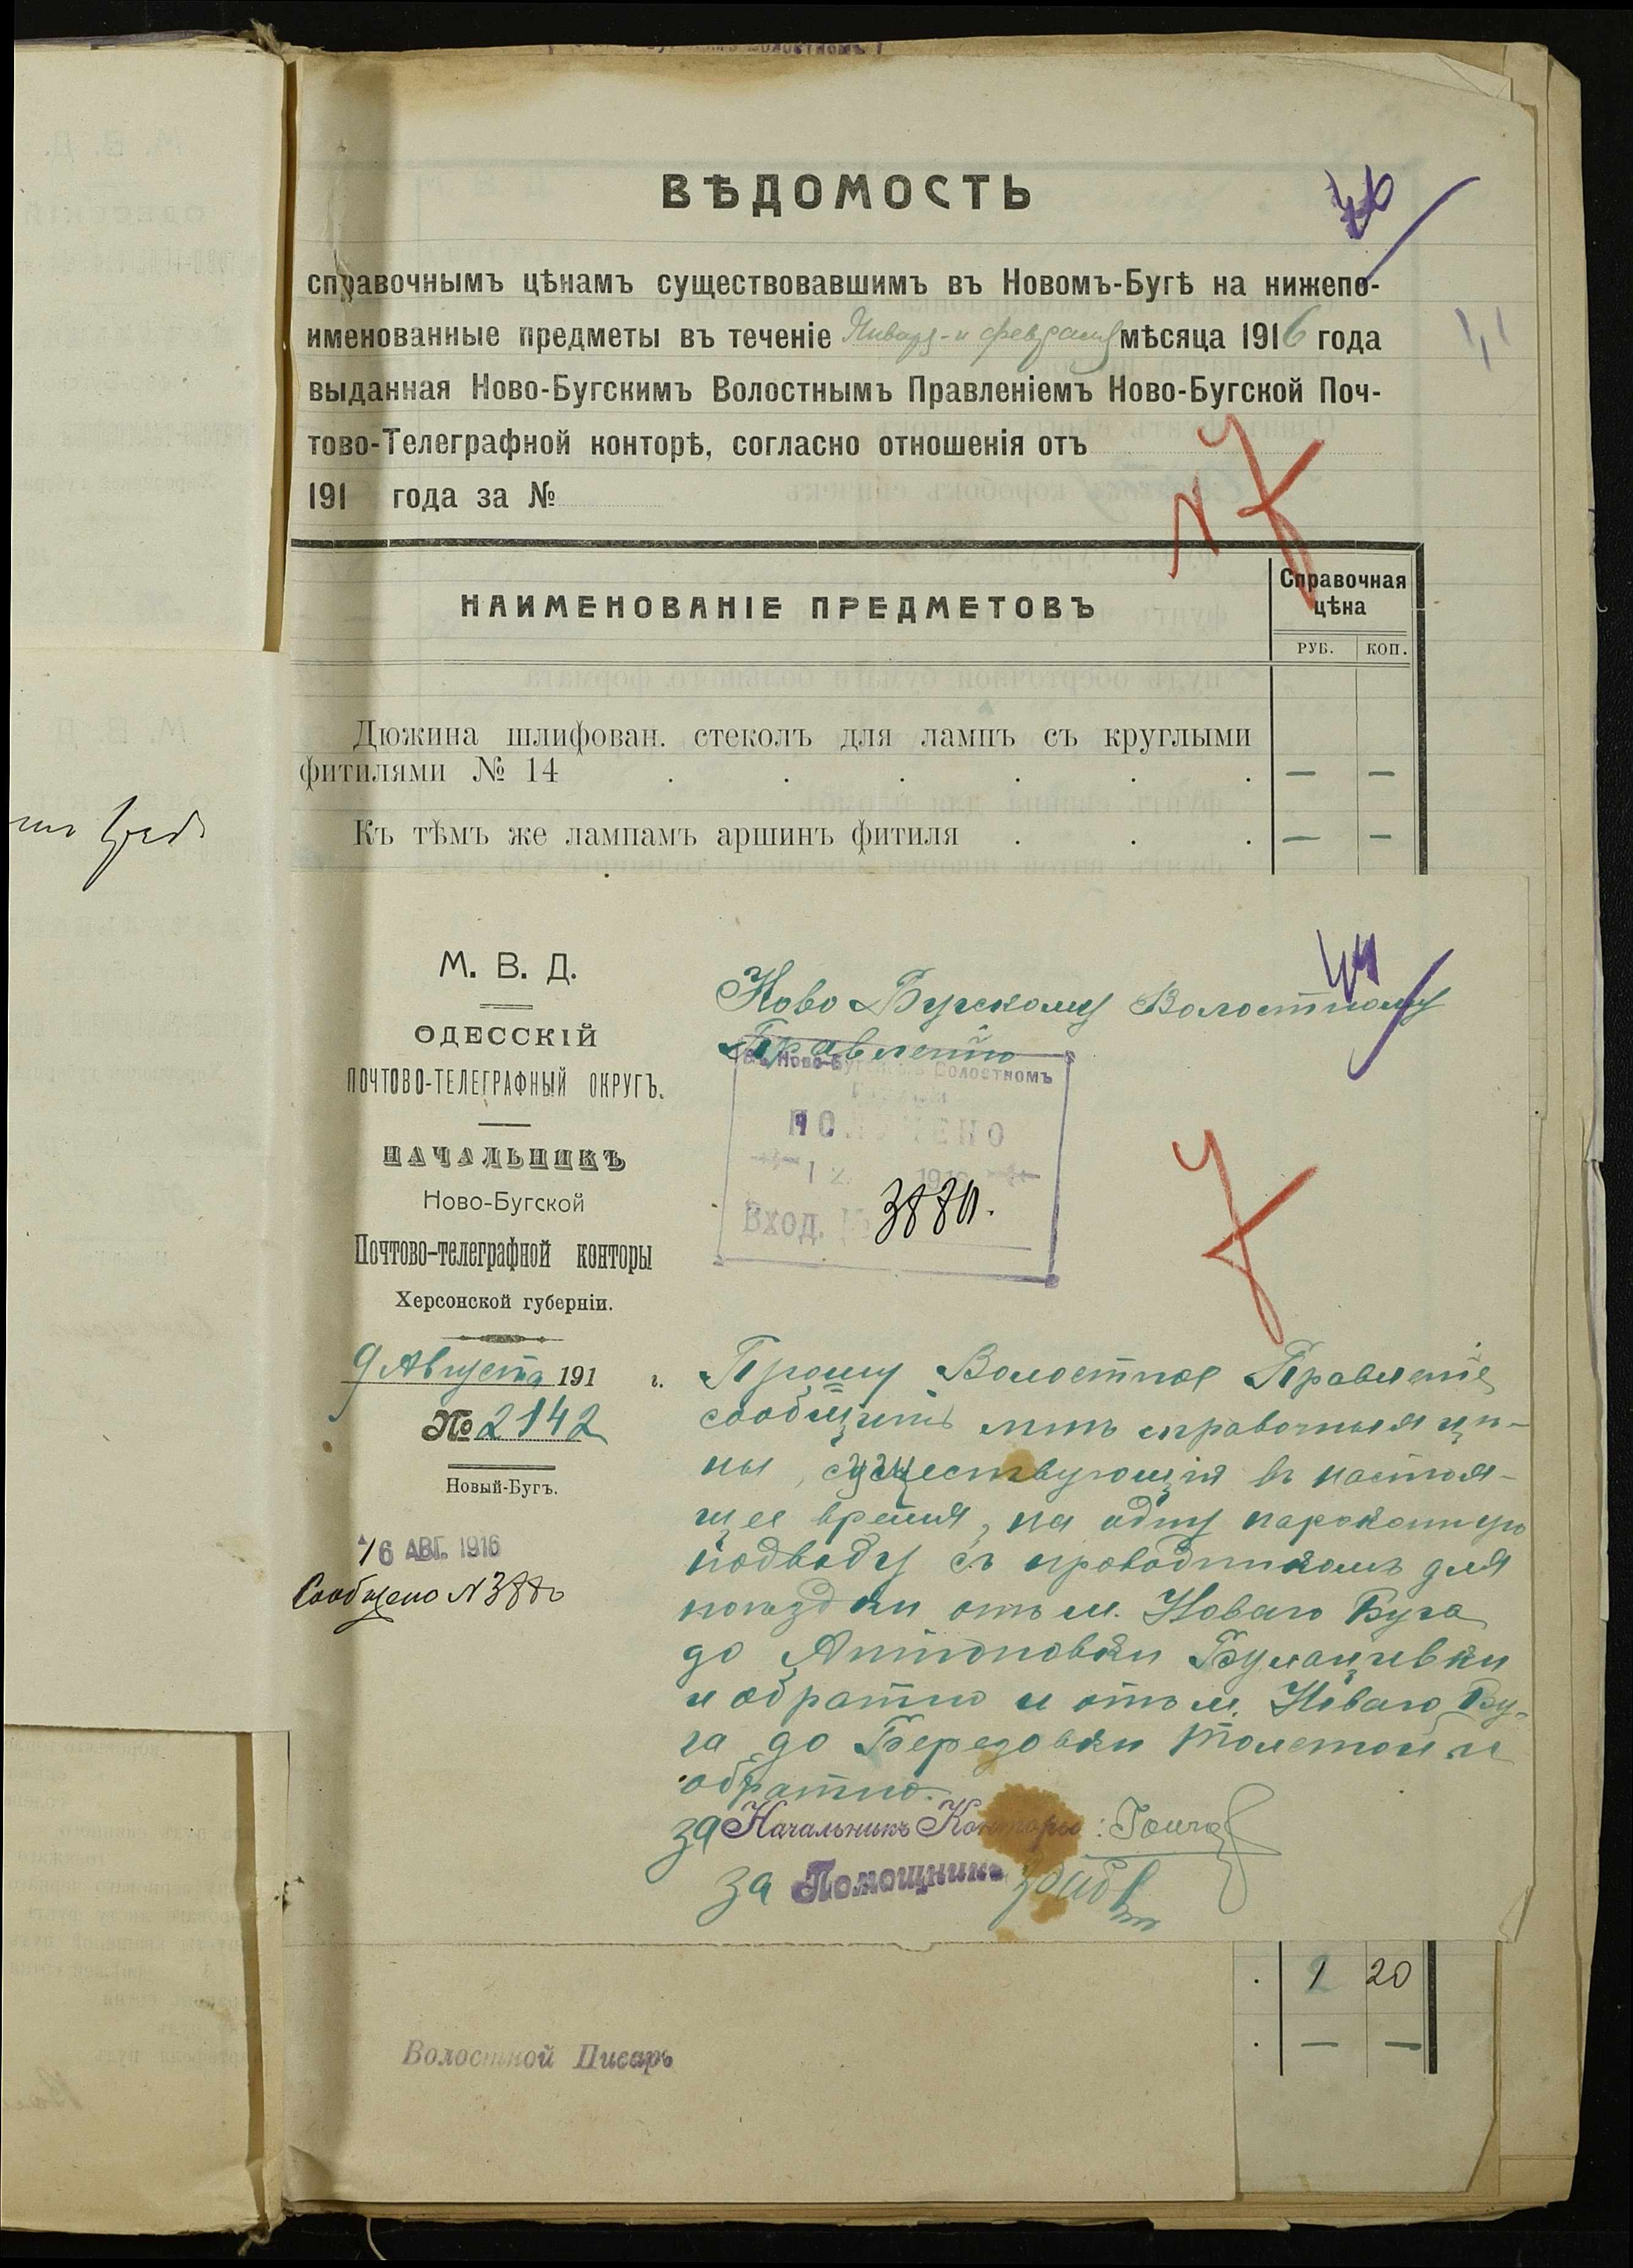 ВѢДОМОСТЬ
справочнымъ цѣнамъ существовавшимъ въ Новомъ-Бугѣ на нижепо-
именованные предметы въ теченіе Января-и февраля мѣсяца 1916 года
выданная Ново-Бугскимъ Волостнымъ Правленіемъ Ново-Бугской Поч-
тово-Телеграфной конторѣ, согласно отношенія отъ
191 года за №
НАИМЕНОВАНІЕ ПРЕДМЕТОВЪ
Справочная
цѣна
РУБ. КОП.
Дюжина шлифован. стеколъ для лампъ съ круглыми
фитилями № 14 . . . . . . — —
Къ тѣмъ же лампамъ аршинъ фитиля . . . — —
М. В. Д.
ОДЕССКІЙ
ПОЧТОВО-ТЕЛЕГРАФНЫЙ ОКРУГЪ.
НАЧАЛЬНИКЪ
Ново-Бугской
Почтово-телеграфной конторы
Херсонской губерніи.
9 Августа 191 г.
№ 2142
Новый-Бугъ.
16 АВГ. 1916
Сообщено N 3880
44
Ново Бугскому Волостному
Правленію
Въ Ново-Бугскомъ Волостномъ
ПОЛУЧЕНО
Вход. № 3880.
Прошу Волостное Правленіе
сообщить мнѣ справочныя цѣ-
ны, существующія въ настоя-
щее время, на одну пароконную
подводу съ проводникомъ для
поѣздки отъ м. Новаго Буга
до Антоновки Буланцевки
и обратно и отъ м. Новаго Бу-
га до Березовки Толстой и
обратно.
за Начальникъ Конторы:
за Помощникъ
1 20
— —
Волостной Писарь